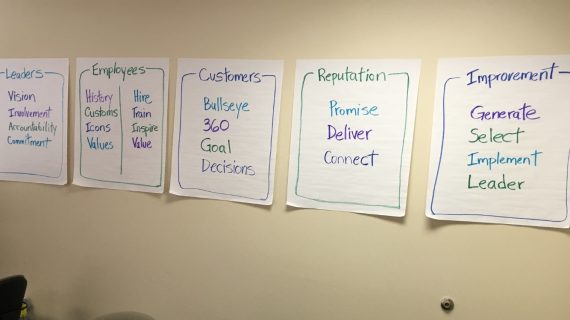 Leaders
Vision
Involvement
Accountability
Commitment
Employees
History
Customs
Icons
Values
Hire
Train
Inspire
Value
Customers
Bullseye
360
Goal
Decisions
Reputation
Promise
Deliver
Connect
Improvement
Generate
Select
Implement
Leader